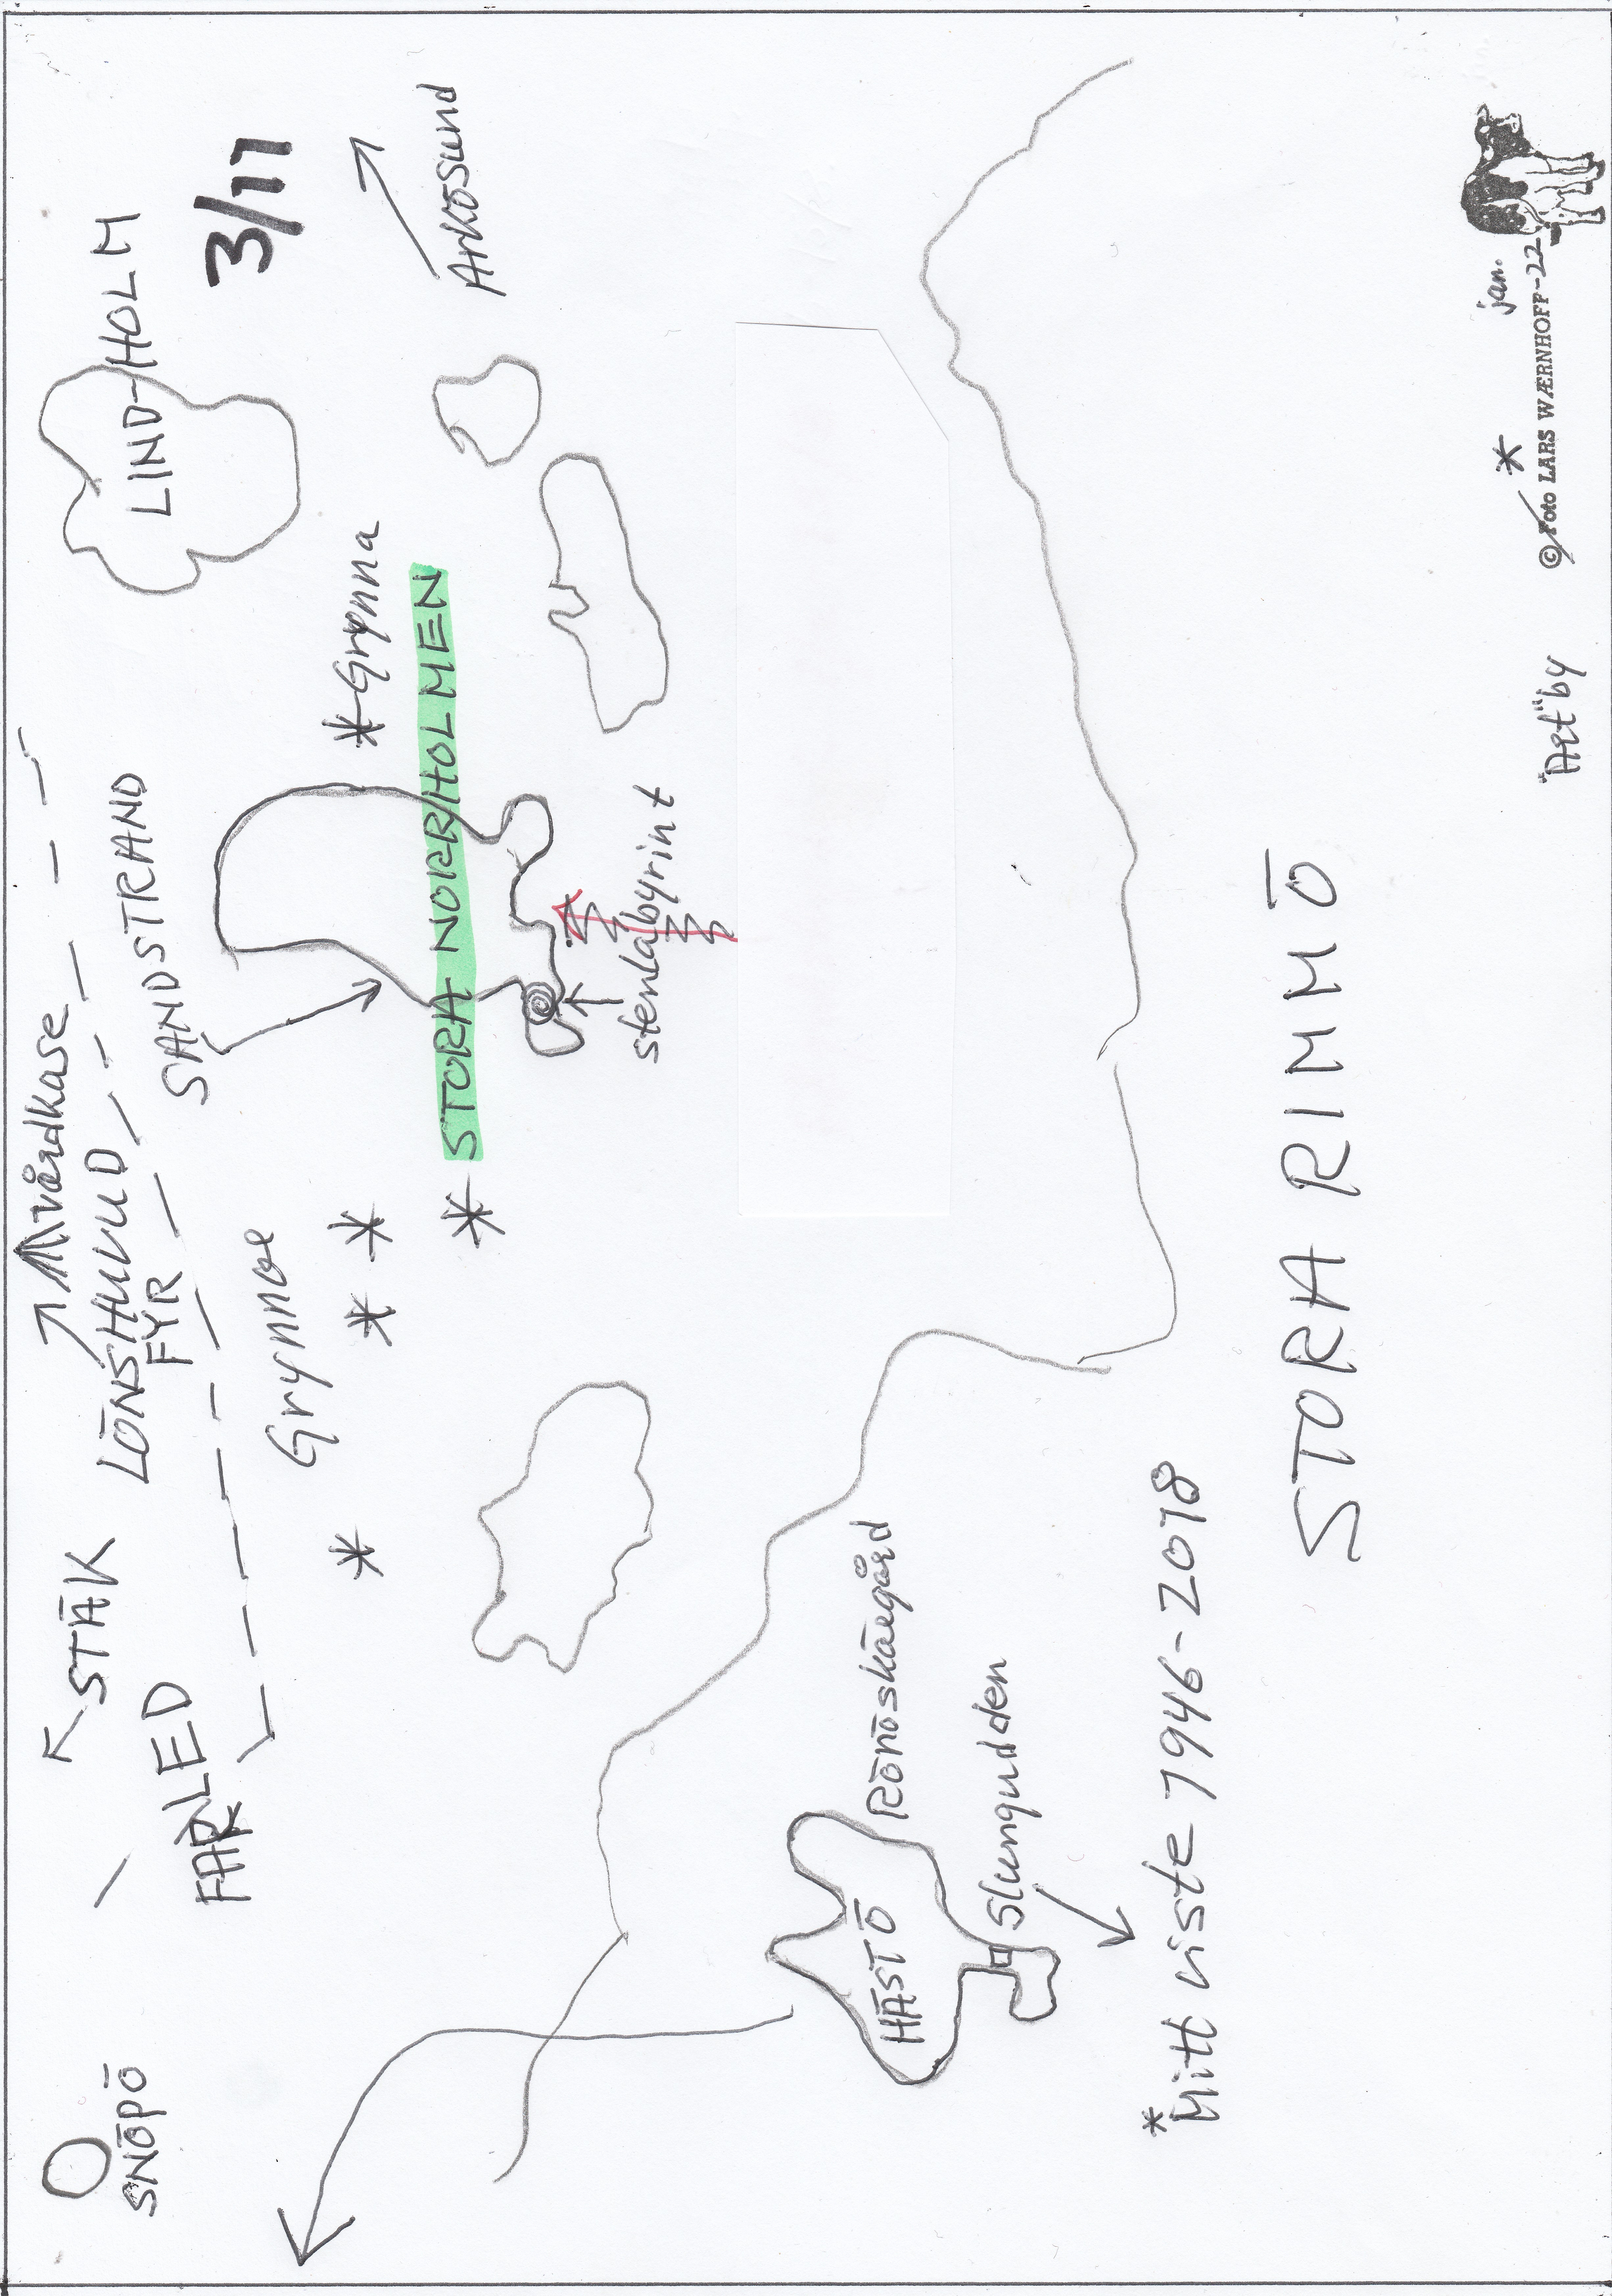 SNÖPÖ
STÄK
FARLED
vårdkase
LÖNSHUVUD
FYR
SANDSTRAND
LIND-HOLM
3/11
Grynnor
*Grynna
Arkösund
* STORA NORRHOLMEN
stenlabyrint
HÄSTÖ
Rönöskärgård
Slungudden
*Mitt viste 1946-2018
STORA RIMMÖ
"Art" by
* jan.
© Foto LARS WÆRNHOFF-22